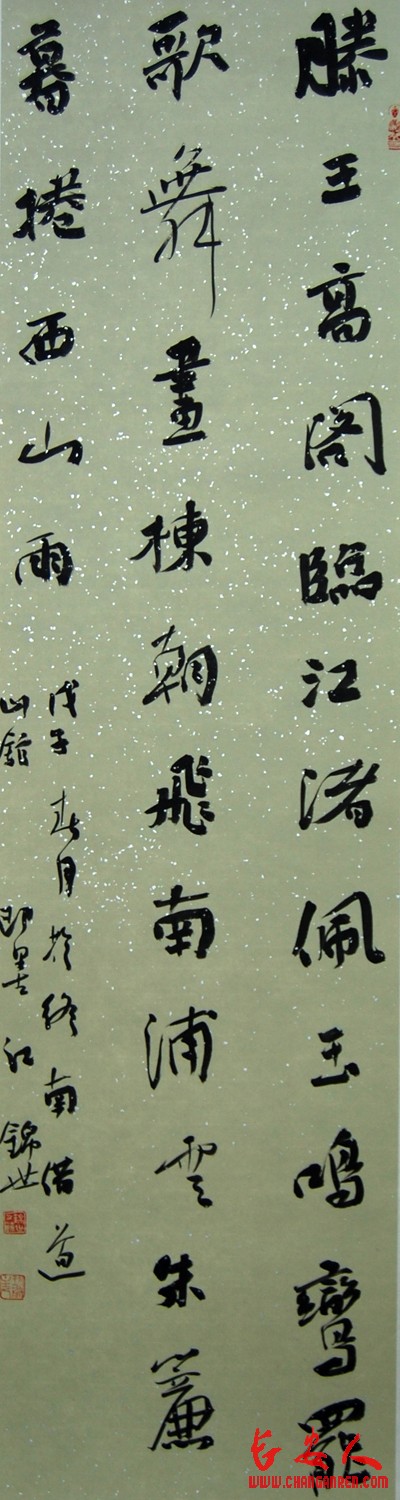 滕王高阁臨江渚佩玉鳴鸞罷
歌舞畫棟朝飛南浦雲朱簾
暮捲西山雨
戊子春月於終南借道
山舘 即墨江錦世
长安人
WWW.CHANGANREN.COM